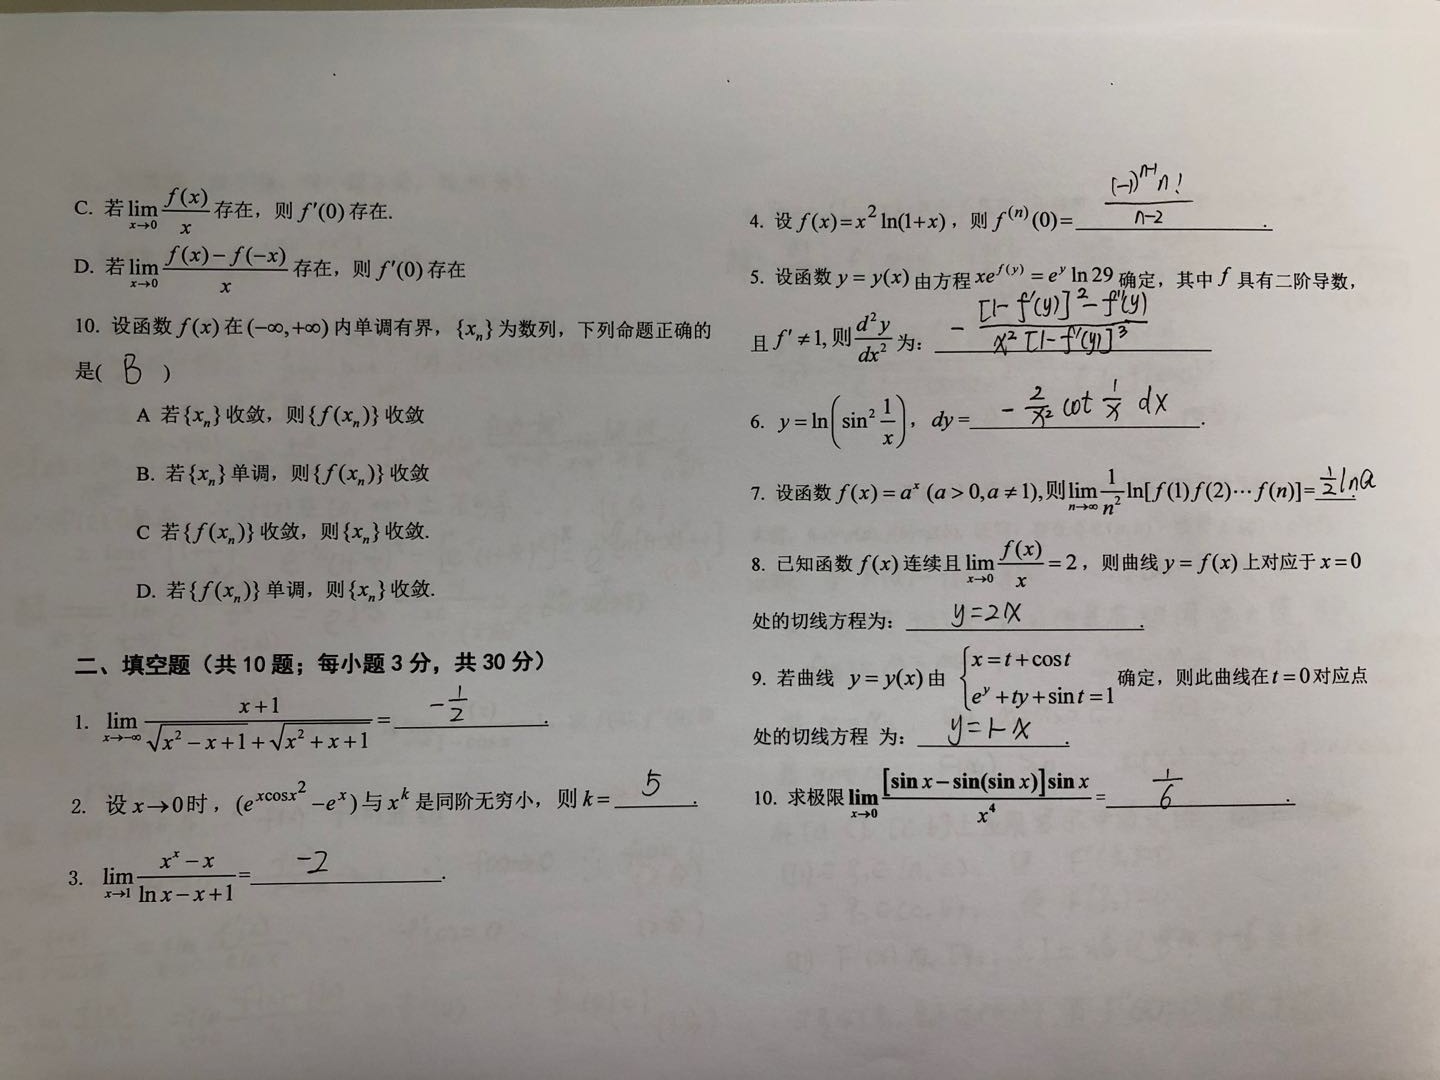 C. 若 lim_{x→0} f(x)/x 存在，则 f′(0) 存在.
D. 若 lim_{x→0} (f(x)－f(－x))/x 存在，则 f′(0) 存在
10. 设函数 f(x) 在 (－∞,+∞) 内单调有界，{x_n} 为数列，下列命题正确的
是( B )
A 若{x_n}收敛，则{f(x_n)}收敛
B. 若{x_n}单调，则{f(x_n)}收敛
C 若{f(x_n)}收敛，则{x_n}收敛.
D. 若{f(x_n)}单调，则{x_n}收敛.
二、填空题（共 10 题；每小题 3 分，共 30 分）
1. lim_{x→－∞} (x+1)/(√(x²－x+1)+√(x²+x+1)) = －1/2 .
2. 设 x→0时，(e^{xcosx²}－e^x)与 x^k 是同阶无穷小，则 k= 5 .
3. lim_{x→1} (x^x－x)/(ln x－x+1) = －2 .
4. 设 f(x)=x² ln(1+x)，则 f^{(n)}(0)= (－1)^{n-1} n!/(n-2) .
5. 设函数 y=y(x) 由方程 xe^{f(y)}=e^y ln 29 确定，其中 f 具有二阶导数，
且 f′≠1,则 d²y/dx² 为： － ([1－f′(y)]²－f″(y))/(x²[1－f′(y)]³)
6. y=ln(sin² 1/x)，dy= －2/x² cot 1/x dx .
7. 设函数 f(x)=a^x (a>0,a≠1),则 lim_{n→∞} 1/n² ln[f(1)f(2)⋯f(n)]= 1/2 lna .
8. 已知函数 f(x) 连续且 lim_{x→0} f(x)/x =2，则曲线 y=f(x) 上对应于 x=0
处的切线方程为： y=2x .
9. 若曲线 y=y(x) 由 {x=t+cost, e^y+ty+sint=1 确定，则此曲线在t=0对应点
处的切线方程 为： y=1-x .
10. 求极限 lim_{x→0} [sin x－sin(sin x)]sin x/x⁴ = 1/6 .